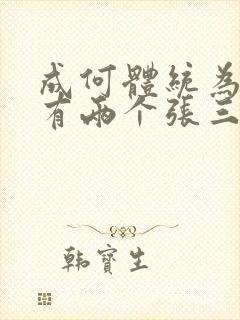 成何體統為
有兩个張三
韩寶生